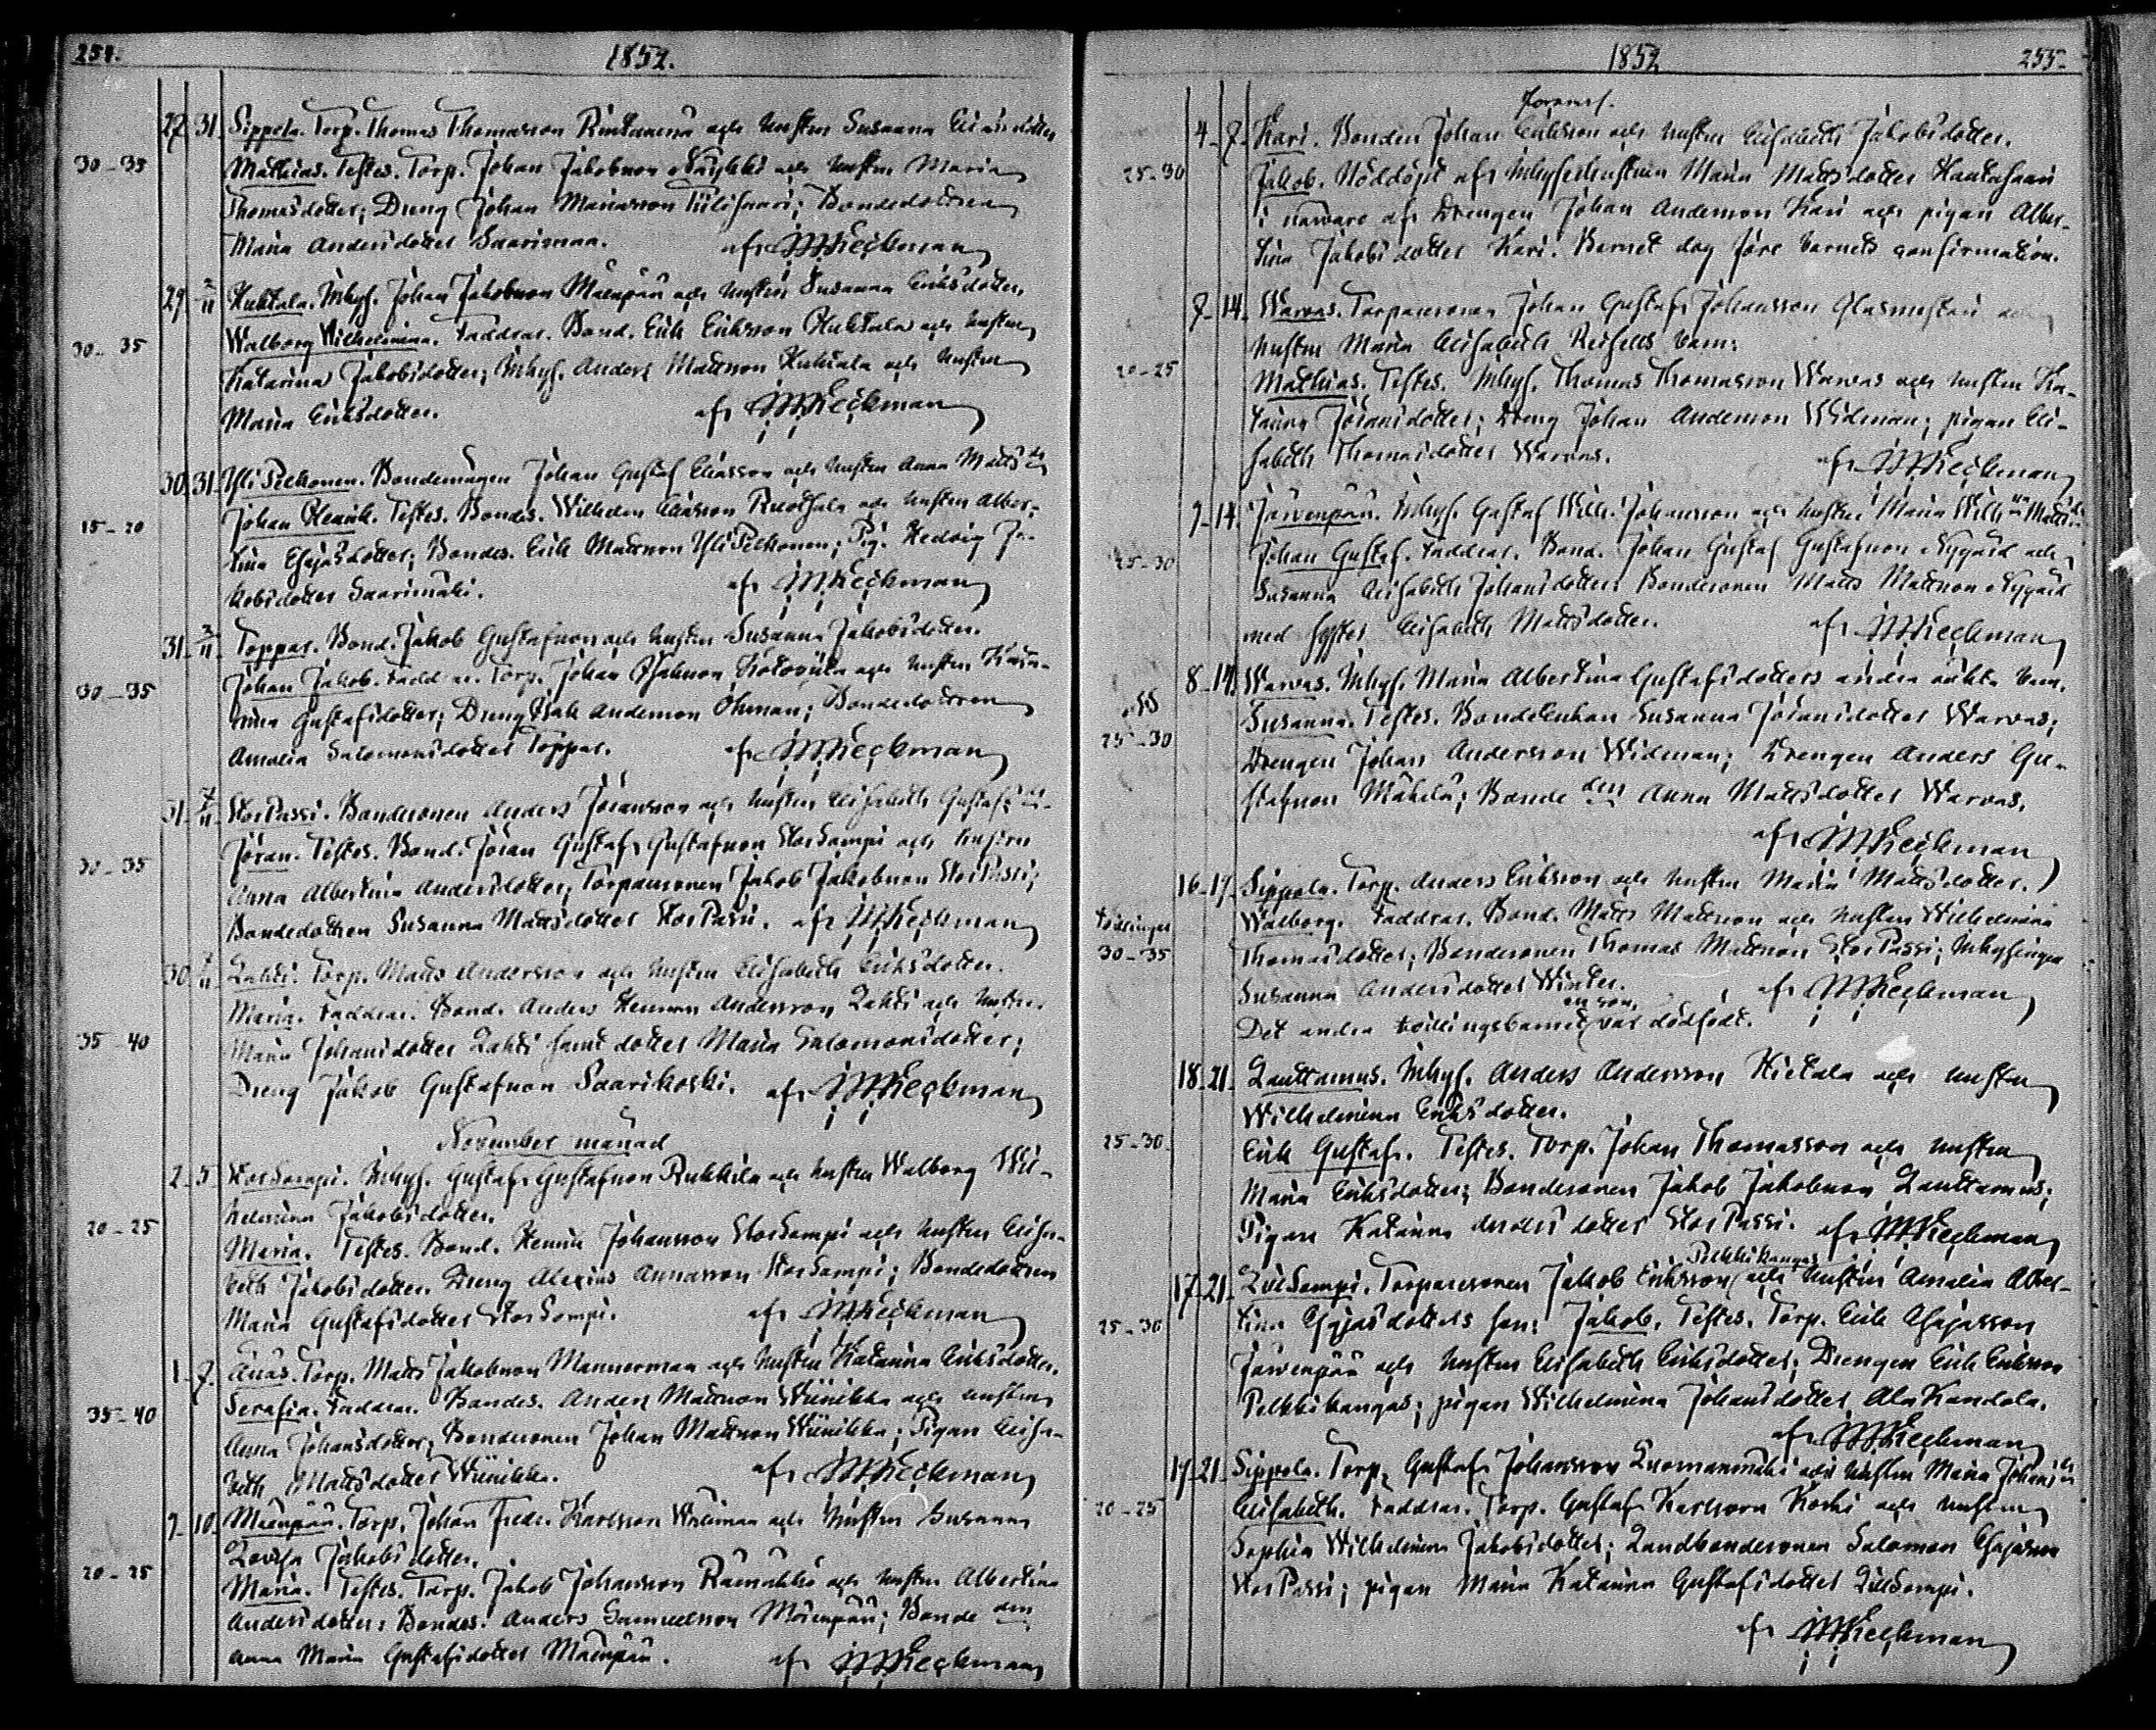 254.
1852.
27. 31. Sippola. Torp. Thomas Thomasson och hustru Susanna
30-35
Mathias. Testes. Torp. Johan Jakobsson och hustru Maria
Thomasdotter; Dreng Johan Tiilisaari; Bondedottren
Maria Andersdotter Saarimaa. af M Heickman
29. 2/11 Huhtala. Inhys. Johan Jakobsson Mäenpää och hustru Susanna Eriksdotter.
30-35
Walborg Wilhelmina. Faddrar. Bond. Erik Eriksson Huhtala och hustru
Katarina Jakobsdotter; Inhys. Anders Mattsson Huhtala och hustru
Maria Eriksdotter. af M Heickman
30. 31. Yli Pelkonen. Bondemågen Johan Gustaf Eliasson och hustru Anna Matts dr
15-20
Johan Henrik. Testes. Bondes. Wilhelm Eliasson och hustru Alber-
tina Esajasdotter; Bondes. Erik Mattsson Yli Pelkonen; Pig. Hedvig Ja-
kobsdotter Saarimäki. af M Heickman
31. 3/11 Toppar. Bond. Jakob Gustafsson och hustru Susanna Jakobsdotter.
30-35
Johan Jakob. Faddrar. Torp. Johan och hustru
Gustafsdotter; Dreng Isak Andersson Öhman; Bondedottren
Amalia Salomonsdotter Toppar. af M Heickman
31. 7/11 StorPassi. Bondesonen Anders Jöransson och hustru Elisabeth Gustafs dr
30-35
Jöran. Testes. Bond. Jöran Gustaf Gustafsson StorSompi och hustru
Anna Albertina Andersdotter; Torparesonen Jakob Jakobsson StorPassi;
Bondedottren Susanna Mattsdotter StorPassi. af M Heickman
30. 7/11 Lahti. Torp. Matts Andersson och hustru Elisabeth Eriksdotter.
Maria. Faddrar. Bond. Anders Herman Andersson Lahti och hustru
35-40
Maria Johansdotter Lahti samt dotter Maria Salomonsdotter;
Dreng Jakob Gustafsson Saarikoski. af M Heickman
November månad
2. 5. StorSompi. Inhys. Gustaf Gustafsson Rukkila och hustru Walborg Wil-
helmina Jakobsdotter.
20-25
Maria. Testes. Bond. Henrik Johansson StorSompi och hustru Elisa-
beth Jakobsdotter. Dreng Alexius Annasson StorSompi; Bondedottren
Maria Gustafsdotter StorSompi. af M Heickman
1. 7. Torp. Matts Jakobsson Mannermaa och hustru Katarina Eriksdotter.
35-40
Serafia. Faddrar. Bondes. Anders Mattsson Wiinikka och hustru
Anna Johansdotter; Bondesonen Johan Mattsson Wiinikka; Pigan Elisa-
beth Mattsdotter Wiinikka. af M Heickman
7. 10. Mäenpää. Torp. Johan Fredr. Karlsson och hustru Susanna
Lovisa Jakobsdotter.
20-25
Maria. Testes. Torp. Jakob Johansson och hustru Albertina
Andersdotter; Bondes. Anders Samuelsson Mäenpää; Bonde dtn
Anna Maria Gustafsdotter Mäenpää. af M Heickman
1852
255.
4. 7. Kari. Bonden Johan Eriksson och hustru Elisabeth Jakobsdotter.
25-30
Jakob. Nöddöpt af Inhyseshustrun Maria Mattsdotter Hautasaari
i närvaro af Drengen Johan Andersson Kari och pigan Alber-
tina Jakobsdotter Kari. Barnet dog före barnets confirmation.
7. 14. Warvas. Torparesonen Johan Gustaf Johansson och
hustru Maria Elisabeth barn:
20-25
Mathias. Testes. Inhys. Thomas Thomasson Warvas och hustru Ka-
tarina Jöransdotter; Dreng Johan Andersson Widman; pigan Eli-
sabeth Thomasdotter Warvas. af M Heickman
7. 14. Järvenpää. Inhys. Gustaf Wilh. Johansson och hustru Maria Wilh:na Matts dr
25-30
Johan Gustaf. Faddrar. Bond. Johan Gustaf Gustafsson Nygård och
Susanna Elisabeth Johansdotter. Bondesonen Matts Mattsson Nygård
med syster Elisabeth Mattsdotter. af M Heickman
8. 14. Warvas. Inhys. Maria Albertina Gustafsdotters andra oäkta barn.
25-30
Susanna. Testes. Bondeenkan Susanna Jöransdotter Warvas;
Drengen Johan Andersson Widman; Drengen Anders Gu-
stafsson Mäkelä; Bonde dtn Anna Mattsdotter Warvas.
af M Heickman
16. 17. Sippola. Torp. Anders Eriksson och hustru Maria Mattsdotter.
Tvillingar
30-35
Walborg. Faddrar. Bond. Matts Mattsson och hustru Wilhelmina
Thomasdotter; Bondesonen Thomas Mattsson StorPassi; Inhysingen
Susanna Andersdotter Winter. af M Heickman
Det andra tvillingsbarnet en son, var dödfödt.
18. 21. Lauttamus. Inhys. Anders Andersson Hietala och hustru
Wilhelmina Eriksdotter.
25-30
Erik Gustaf. Testes. Torp. Johan Thomasson och hustru
Maria Eriksdotter; Bondesonen Jakob Jakobsson Lauttamus;
Pigan Katarina Andersdotter StorPassi. af M Heickman
17. 21. LillSompi. Torparesonen Jakob Eriksson Pelkkikangas och hustru Amalia Alber-
25-30
tina Esajasdotters son: Jakob. Testes. Torp. Erik Esajasson
Järvenpää och hustru Elisabeth Eriksdotter; Drengen Erik Eriksson
Pelkkikangas; pigan Wilhelmina Johansdotter Ala Kandola.
af M Heickman
17. 21. Sippola. Torp. Gustaf Johansson Luomanmäki och hustru Maria Johans dr
20-25
Elisabeth. Faddrar. Torp. Gustaf Karlsson Koski och hustru
Sophia Wilhelmina Jakobsdotter; Landbondesonen Salomon Esajasson
StorPassi; pigan Maria Katarina Gustafsdotter LillSompi.
af M Heickman